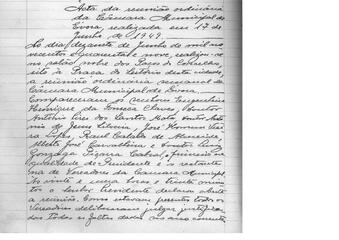 Acta da reunião ordinária
da Câmara Municipal de
Évora, realizada em 17 de
Junho de 1949.
Ao dia dezasete de Junho de mil no-
vecentos e quarenta e nove, realizou-se
no salão nobre dos Paços do Concelho,
sito à Praça do Sertório desta cidade
a reunião ordinária semanal da
Câmara Municipal de Évora.
Compareceram os senhores Engenheiro
Henrique da Fonseca Chaves, Doutor
António Pires dos Santos Mota, Doutor Antó-
nio de Jesus Silva, José
Lopes, Raul Cordato de Almeida,
José Carvalho e Doutor Luiz
Gonzaga Cabral, o primeiro na
qualidade de Presidente e os restantes
na de Vereadores da Câmara Municipal.
Às vinte e uma horas e trinta minu-
tos o Senhor Presidente declarou aberta
a reunião. Como estavam presentes todos os
Vereadores deliberaram julgar justifica-
das todas as faltas dadas